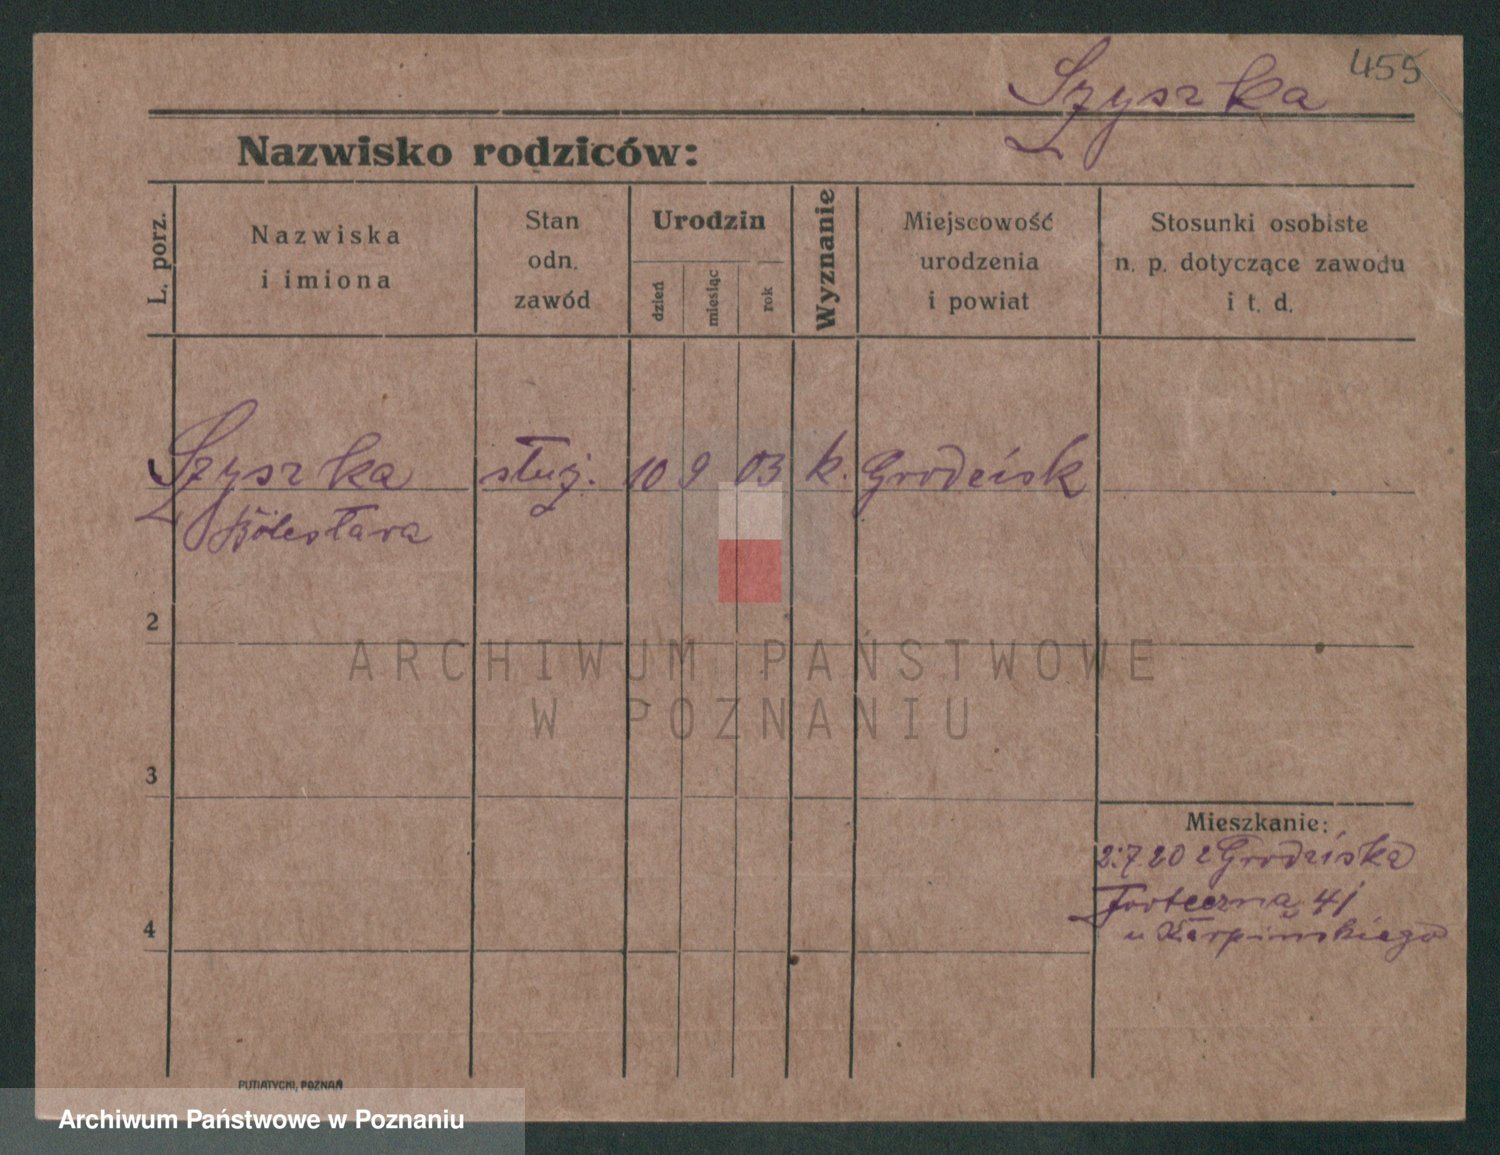 Szyszka 455
Nazwisko rodziców:
L. porz.
Nazwiska
i imiona
Stan
odn.
zawód
Urodzin
dzień
miesiąc
rok
Wyznanie
Miejscowość
urodzenia
i powiat
Stosunki osobiste
n. p. dotyczące zawodu
i t. d.
Szyszka służ. 10 9 03 k. Grodzisk
Bolesława
2
ARCHIWUM PAŃSTWOWE
W POZNANIU
3
Mieszkanie:
2.7.20 z Grodziska
Forteczna 4
4
u Karpińskiego
PUTIATYCKI, POZNAŃ
Archiwum Państwowe w Poznaniu